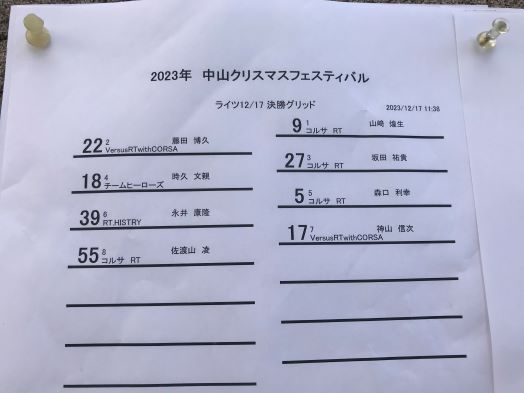 2023年 中山クリスマスフェスティバル
ライツ12/17 決勝グリッド
2023/12/17 11:38
9 1 山崎 煌生
コルサ RT
22 2 藤田 博久
VersusRTwithCORSA
27 3 坂田 祐貴
コルサ RT
18 4 時久 文親
チームヒーローズ
5 5 森口 利幸
コルサ RT
39 6 永井 康隆
RT.HISTRY
17 7 神山 信次
VersusRTwithCORSA
55 8 佐渡山 凌
コルサ RT